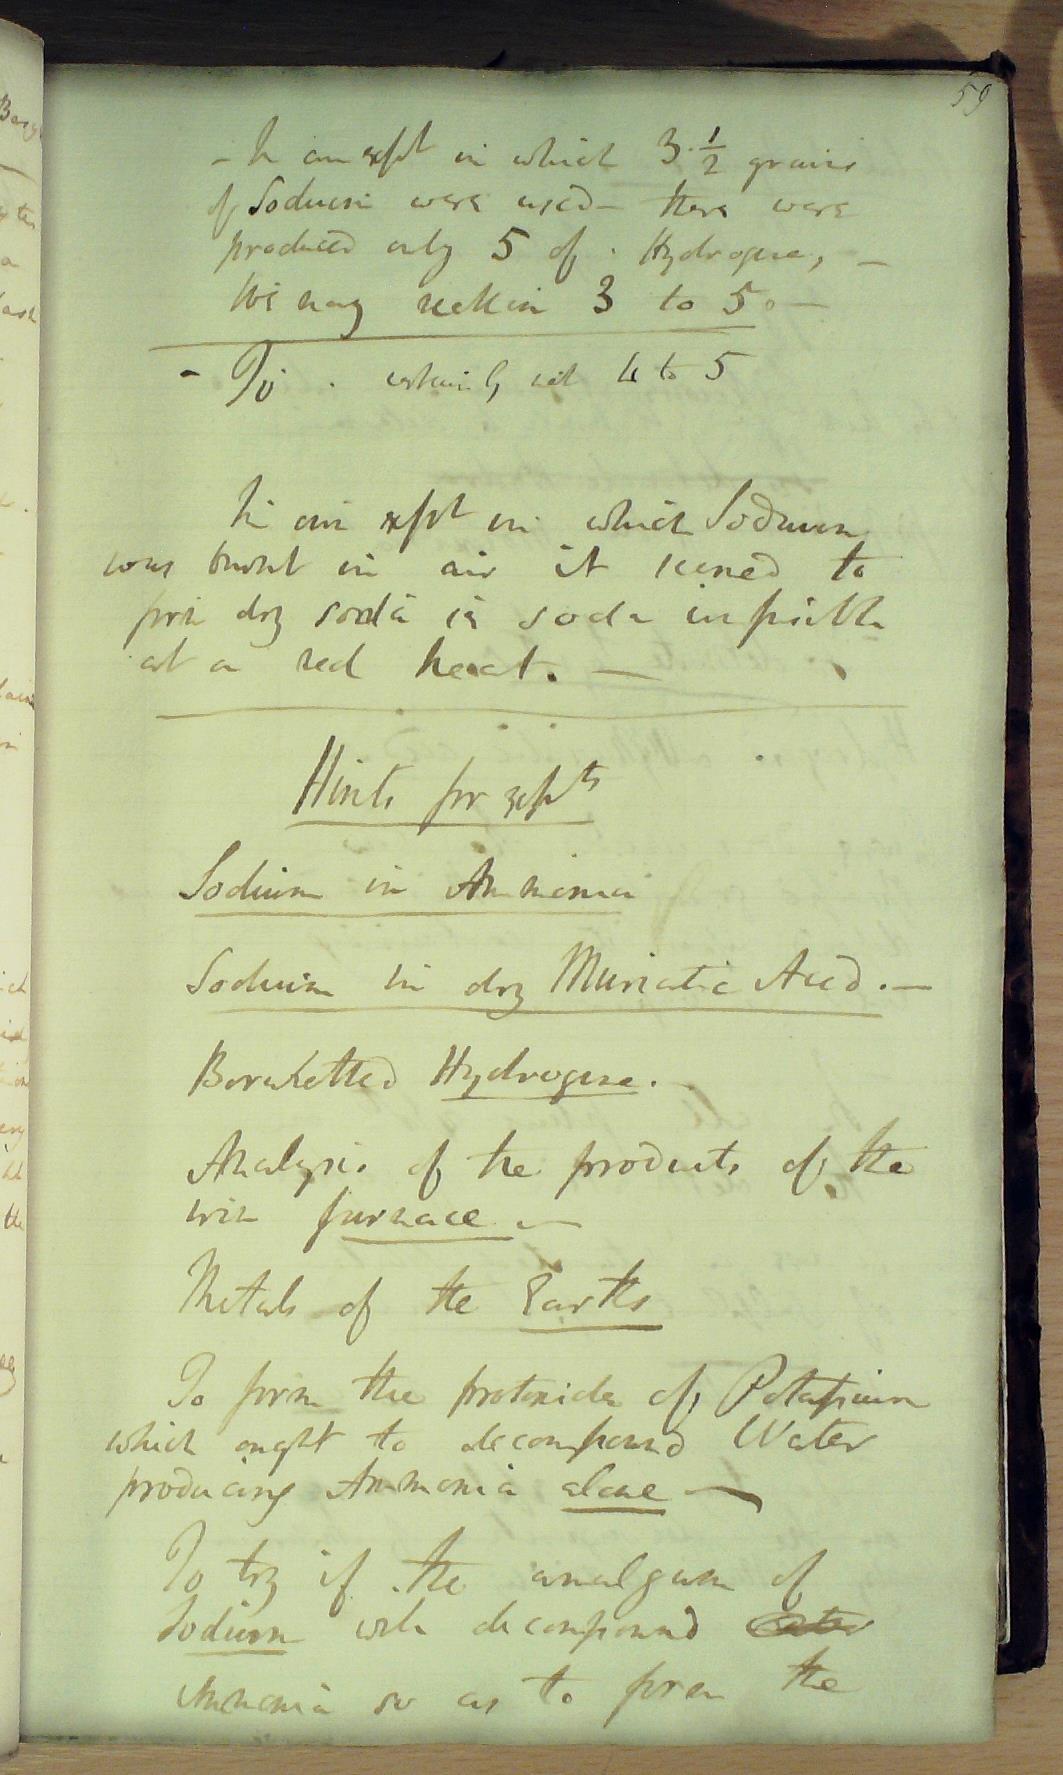 59
- In an expt in which 3 1/2 grains
of Sodium were used - there were
produced only 5 of Hydrogene, -
We may reckon 3 to 5. -
- To certainly not 4 to 5
In an expt in which Sodium
was burnt in air it seemed to
form dry soda is soda infusible
at a red heat. -
Hints for expts
Sodium in Ammonia
Sodium in dry Muriatic Acid. -
Boruretted Hydrogene.
Analysis of the products of the
iron furnace -
Metals of the Earths
To form the protoxide of Potassium
which ought to decompound Water
producing Ammonia alone -
To try if the amalgam of
Sodium will decompound
Ammonia so as to form the